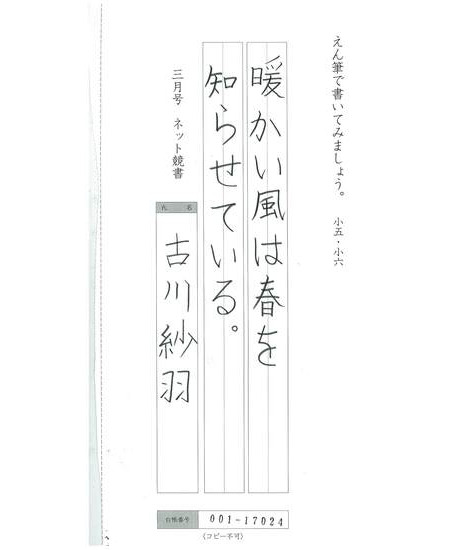 えん筆で書いてみましょう。 小五・小六
暖かい風は春を
知らせている。
三月号 ネット競書
氏名
古川紗羽
台帳番号 001-17024
(コピー不可)